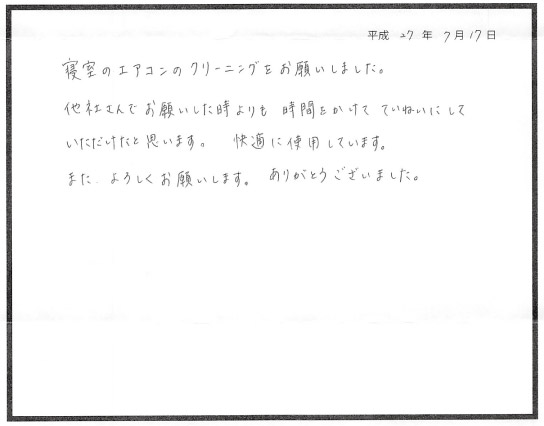 平成 27 年 7月17日
寝室のエアコンのクリーニングをお願いしました。
他社さんでお願いした時よりも 時間をかけて ていねいにして
いただけたと思います。 快適に使用しています。
また、よろしくお願いします。 ありがとうございました。